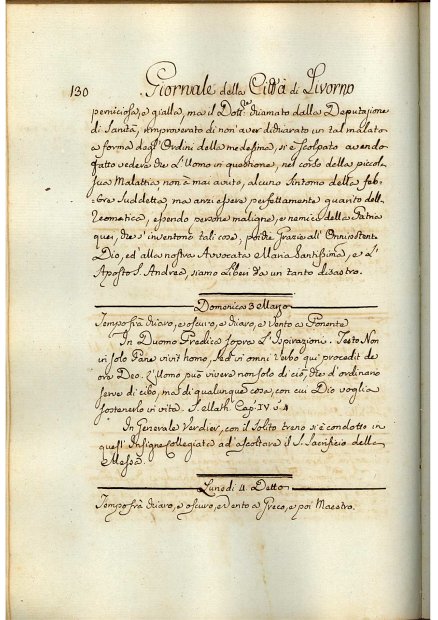 130 Giornale della Città di Livorno
perniciosa, e gialla, ma il Dott.re chiamato dalla Deputazione
di Sanità, rimproverato di non aver dichiarato un tal malato
a forma degl'Ordini della medesima, si è scolpato avendo
fatto vedere che l'Uomo in questione, nel corso della piccola
sua Malattia non à mai avuto, alcuno Sintomo della feb-
bre suddetta, ma anzi essere perfettamente guarito della
Reomatica, essendo persone maligne, e nemica della Patria
quei, che s'inventono tali cose, poiche Grazie all'Onnipotente
Dio, ed alla nostra Avvocata Maria Santissima, e l'
Apostolo S. Andrea, siamo Liberi da un tanto disastro.
Domenica 3 Marzo
Tempo frà chiaro, e oscuro, e chiaro, e Vento a Ponente
In Duomo Predica sopra l'Ispirazioni. Testo Non
in solo Pane vivit homo, sed in omni Verbo qui procedit de
ore Deo. L'Uomo può vivere non solo di ciò, che d'ordinario
serve di cibo, ma di qualunque cosa, con cui Dio voglia
sostenerlo in vita. S. Math. Cap. IV v. 4
In Generale Verdier, con il solito treno si è condotto in
quest'Insigne Collegiata ad ascoltare il S. Sacrifizio della
Messa.
Lunedì 4. Detto
Tempo frà chiaro, e oscuro, e Vento a Greco, e poi Maestro.